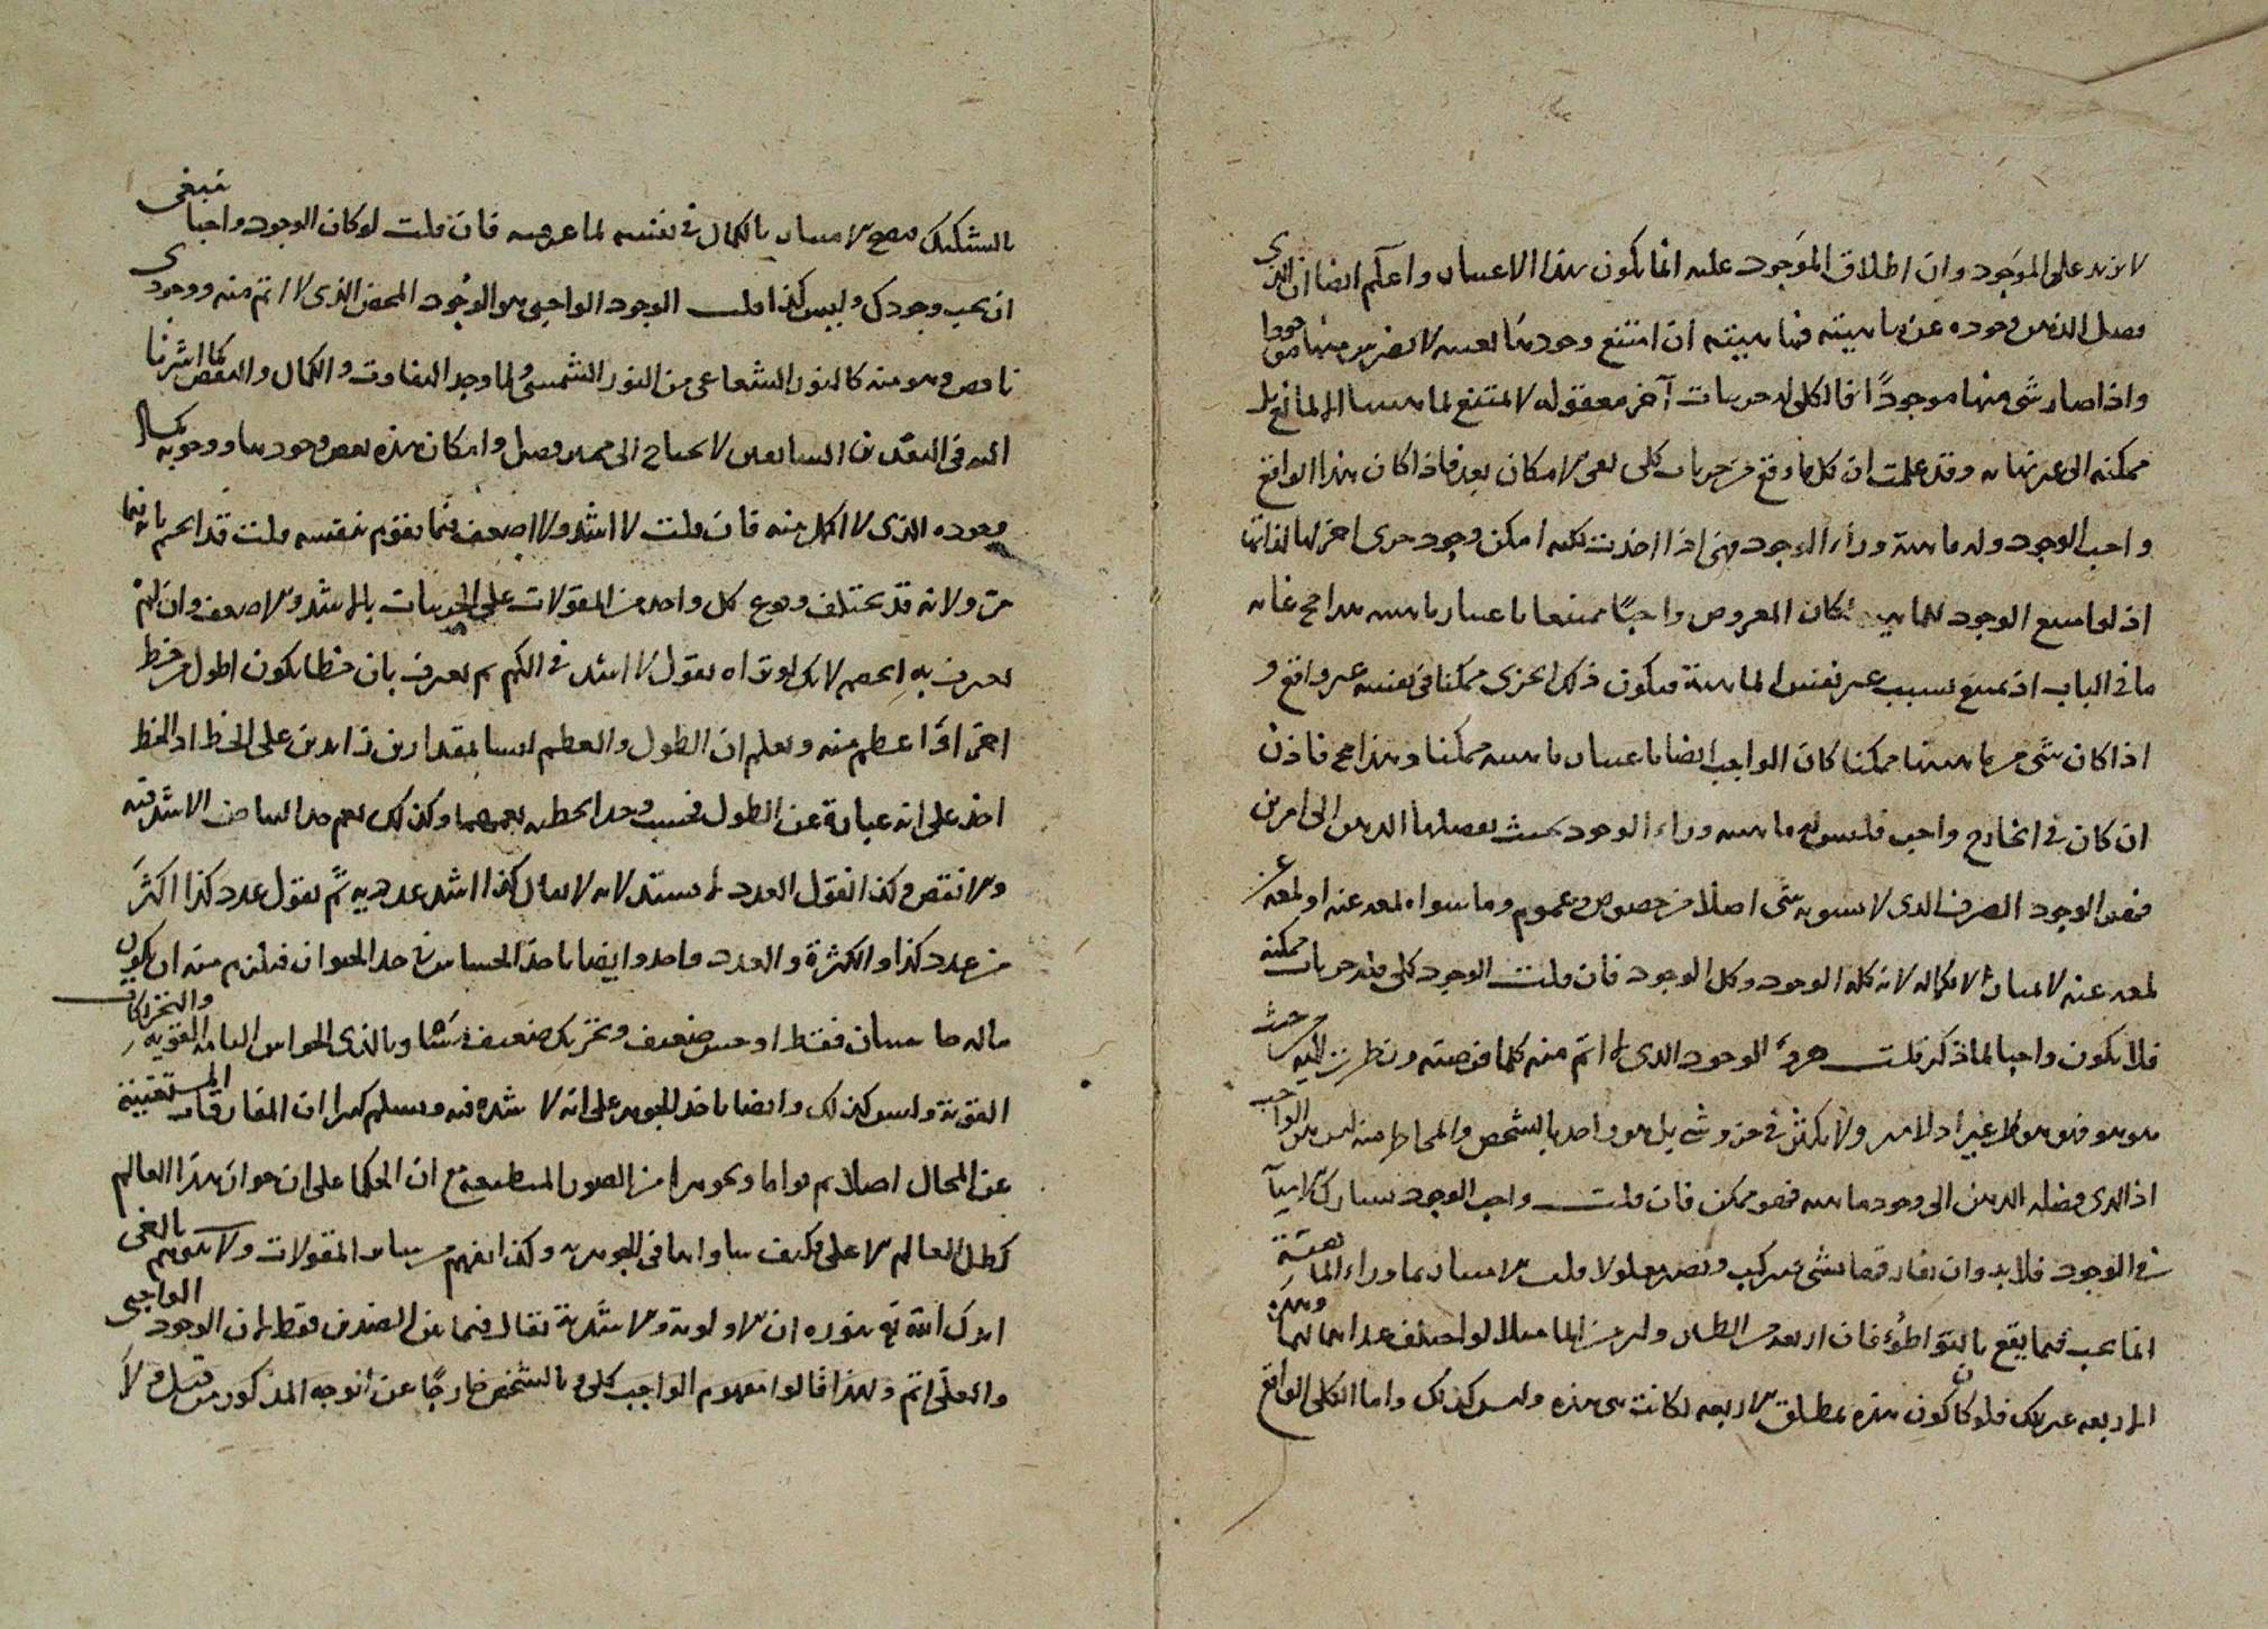 لا يزيد على الموجود وان اطلاق الموجود عليه انما يكون بهذا الاعتبار واعلم ايضا ان الذى
فصل الذهن وجوده عن ماهيته فماهيته ان امتنع وجودها لعينه لا يصير منها موجودا
واذا صار شى منها موجودًا فالكلى له جزييات آخر معقوله لا يمتنع لماهيتها الا لمانع بل
ممكنه الى غير نهايه وقد علمت ان كل ما وقع من جزييات كلى بقى الامكان بعد فاذا كان هذا الواقع
واجب الوجود وله ماهية وراء الوجود فهى اذا اخذت كليه امكن وجود جزى اخر لها لذاتها
اذ لو امتنع الوجود للماهية لكان المفروض واجبًا ممتنعا باعتبار ماهيته هذا مح غايه
ما فى الباب ان يمتنع بسبب غير نفس الماهية فيكون ذلك الجزى ممكنا فى نفسه غير واقع و
اذا كان شى من ماهيتها ممكنا كان الواجب ايضا باعتبار ماهيته ممكنا وهذا مح فاذن
ان كان فى الخارج واجب فليس له ماهيه وراء الوجود بحيث يفصلها الذهن الى امرين
فهو الوجود الصرف الذى لا يشوبه شى اصلا من خصوص وعموم وما سواه لمعه عنه او لمعه عن
لمعه عنه لا يمتاز الا بكماله لانه كله الوجود وكل الوجود فان قلت الوجود كلى فله جزييات ممكنه
فلا يكون واجبا لما ذكر قلت صرف الوجود الذى لا اتم منه كلما فرضته ونظرت اليه من حيث
هو هو فهو هو لا غير اذ لا ميز ولا يكثر فى صرف شى بل هو واحد بالشخص والمحاط منه ليس هو الواجب
اذ الذى فصله الذهن الى وجود ماهيه فهو ممكن فان قلت واجب الوجود يشارك الاشيآ
فى الوجود فلا بد وان يفارقها بشى فيتركب ويصير معلولا قلت الامتياز بما وراء الماهية
انما يجب فيما يقع بالتواطؤ فان اربعه من
الاربعه غير تلك فلو كان كون هذه بمطلق الاربعه لكانت هى هذه وليس كذلك واما الكلى الواقع
بالتشكيك فيصح الامتياز بالكمال فى نفسه لما عرفته فان قلت لو كان الوجود واجبا ينبغى
ان يجب وجودك وليس كذا قلت الوجود الواجبى هو الوجود المحض الذى لا اتم منه ووجودى
ناقص وهو منه كالنور الشعاعى من النور الشمسى ولما وجد التفاوت والكمال والنقص كما اشرنا
اليه فى المقدارين السابقين لا يحتاج الى مميز فصلى وامكان هذه نقص وجودها ووجوبه كمال
وجوده الذى لا اكمل منه فان قلت لا اشد ولا اضعف فيما يقوم بنفسه قلت قد انحسم بابه فيما
مر ولانه قد يختلف وقوع كل واحد من المقولات على الجزييات بالاشد والاضعف وان لم
يعترف به الخصم لانك تراه يقول لا اشد فى الكم ثم يعترف بان خطا يكون اطول من خط
اخر او اعظم منه ويعلم ان الطول والعظم ليسا بمقدارين زايدين على الخط اذ الخط
اخذ على انه عبارة عن الطول فحسب وحد الخطيه يعمهما وكذلك يعم حد البياض الاشد فيه
والانقص وكذا يقول العدد لا يشتد لانه لا يقال كذا اشد عدديه ثم يقول عدد كذا اكثر
من عدد كذا والكثرة والعدد واحد وايضا ياخذ الحساس فى حد الحيوان فيلزم منه ان يكون
ماله حاستان فقط او حس ضعيف وتحريك ضعيف يتساوى بالذى الحواس التامه القويه والتحريكات
القوية وليس كذلك وايضا ياخذ الجوهر على انه لا شده فيه ويسلم كثيرا ان المفارقات المستغنية
عن المحال اصلا اتم قواما وتجوهرا من الصور المنطبعه مع ان الحكما على ان جواهر هذا العالم
كظل للعالم الاعلى فكيف ساواها فى الجوهريه وكذا افهم من ساير المقولات ولا يتوهم بالغى
ايدك الله تع بنوره ان الاولوية والاشدية تقال فيما بين الضدين فقط بل ان الوجود الواجبى
والعلى اتم ولهذا قالوا مفهوم الواجب كلى وبالشخص خارجًا عن الوجه المذكور من قبل ولا